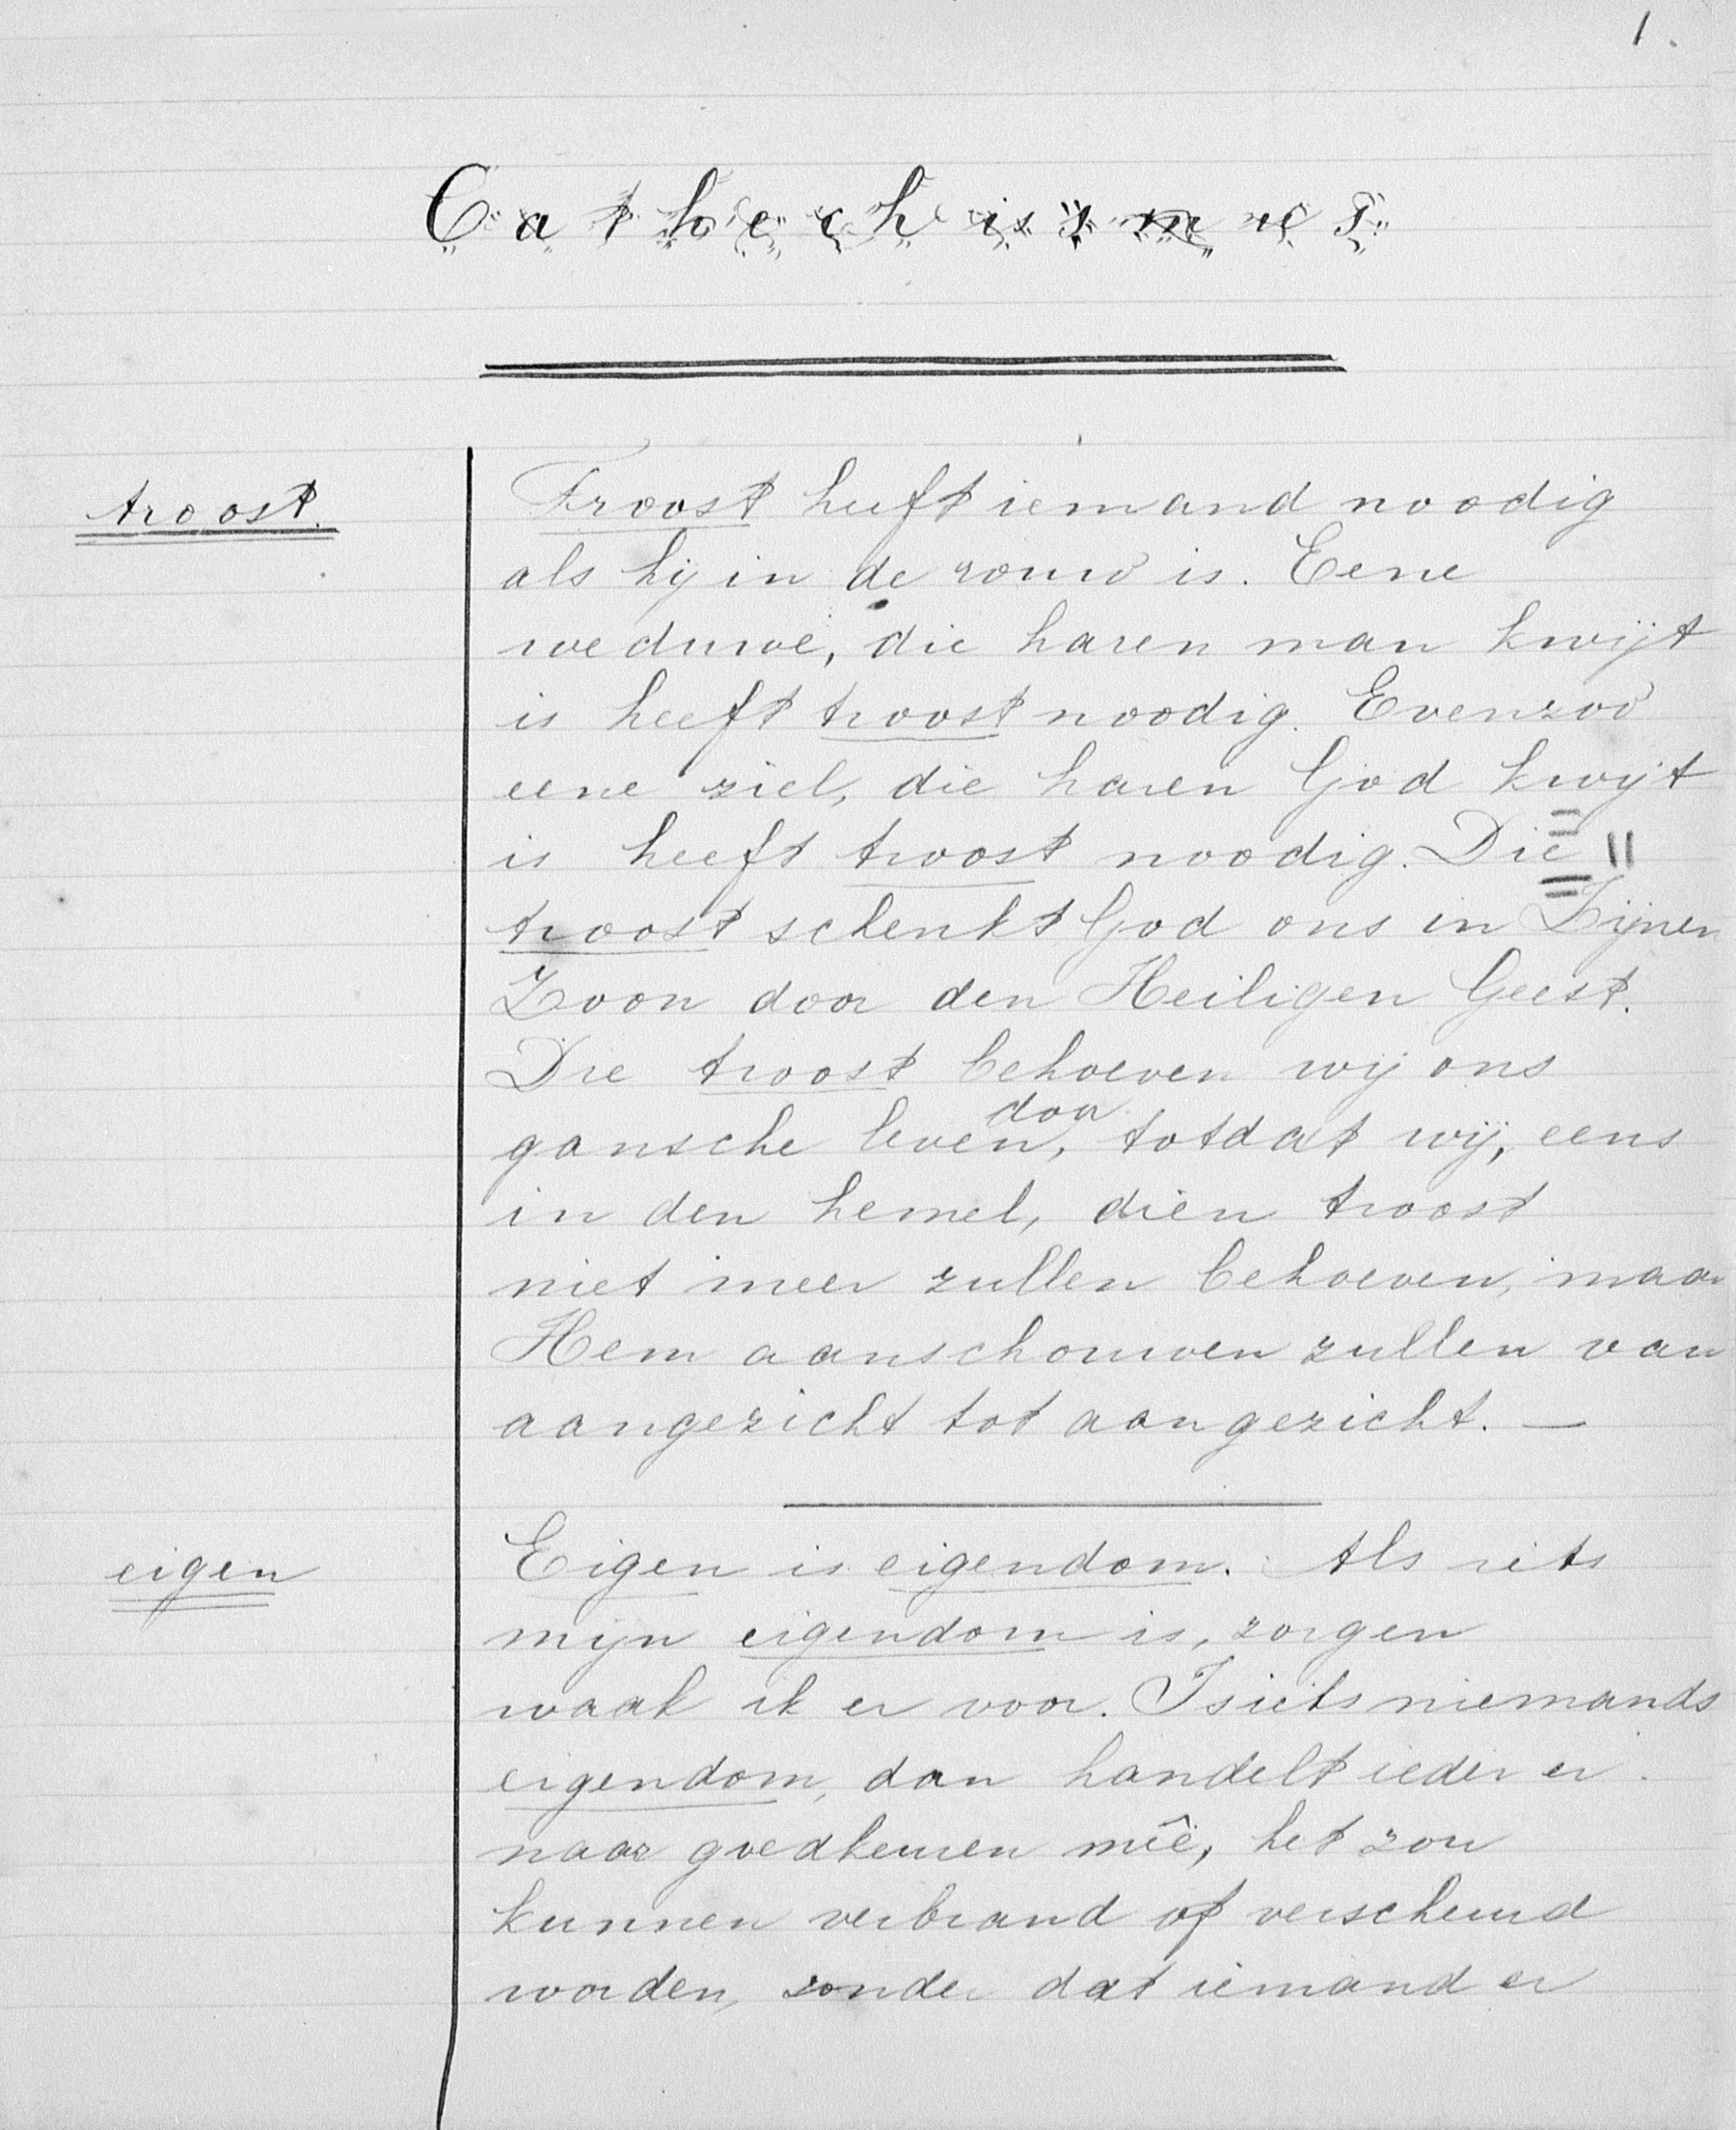 1.
Cathechismus
troost.
Troost heeft iemand noodig
als hij in de rouw is. Eene
weduwe, die haren man kwijt
is heeft troost noodig. Evenzoo
eene ziel, die haren God kwijt
is heeft troost noodig. Die
troost schenkt God ons in Zijnen
Zoon door den Heiligen Geest.
Die troost behoeven wij ons
door
gansche leven, totdat wij, eens
in den hemel, dien troost
niet meer zullen behoeven, maar
Hem aanschouwen zullen van
aangezicht tot aangezicht. —
eigen
Eigen is eigendom. Als iets
mijn eigendom is, zorg en
waak ik er voor. Is iets niemands
eigendom, dan handelt ieder er
naar goedkeuren meê, het zou
kunnen verbrand of verscheurd
worden, zonder dat iemand er